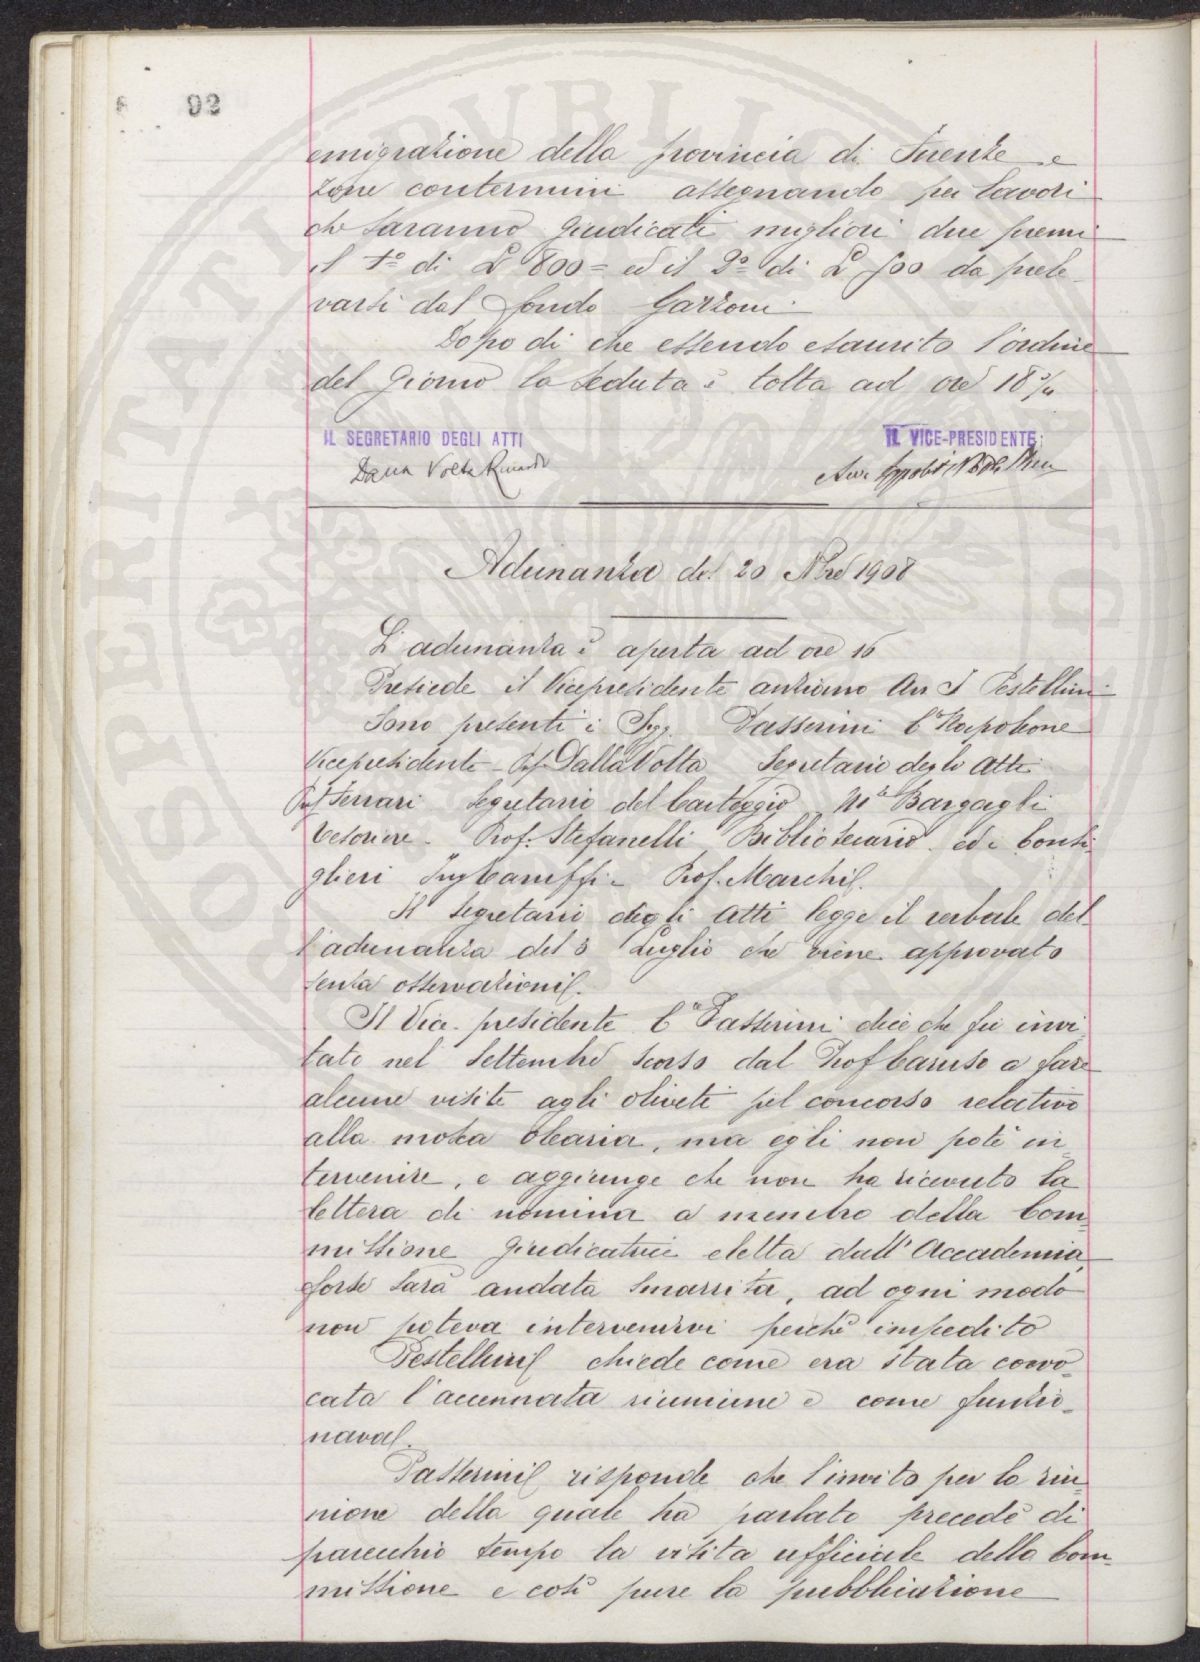 92
emigrazione della provincia di Firenze e
zone contermini assegnando pei lavori
che saranno giudicati migliori due premi
il 1º di £ 800= ed il 2º di £ 500 da prele
varsi dal fondo Garzoni.
Dopo di che essendo esaurito l'ordine
del giorno la seduta è tolta ad ore 18 3/4
IL SEGRETARIO DEGLI ATTI
IL VICE-PRESIDENTE
Dalla Volta Riccardo
Avv
Adunanza del 20 9bre 1908
L'adunanza è aperta ad ore 16
Presiede il Vicepresidente anziano Avv I Pestellini
Sono presenti i Sigg. Passerini Cte Napoleone
Vicepresidente Prof Dalla Volta Segretario degli Atti
Prof Ferrari Segretario del Carteggio, Mse Bargagli
Tesoriere. Prof. Stefanelli Bibliotecario. ed i Consi-
glieri Ing Caneffi e Prof. Marchi.
Il Segretario degli Atti legge il verbale del
l'adunanza del 5 Luglio che viene approvato
senza osservazioni.
Il Vice-presidente Cte Passerini dice che fu invi-
tato nel Settembre scorso dal Prof Caruso a fare
alcune visite agli oliveti pel concorso relativo
alla mosca olearia, ma egli non potè in-
tervenire, e aggiunge che non ha ricevuto la
lettera di nomina a membro della Com-
missione giudicatrice eletta dall'Accademia,
forse sarà andata smarrita, ad ogni modo
non poteva intervenirvi perchè impedito
Pestellini chiede come era stata convo-
cata l'accennata riunione e come funzio-
nava.
Passerini risponde che l'invito per la riu-
nione della quale ha parlato precedè di
parecchio tempo la visita ufficiale della Com-
missione e così pure la pubblicazione